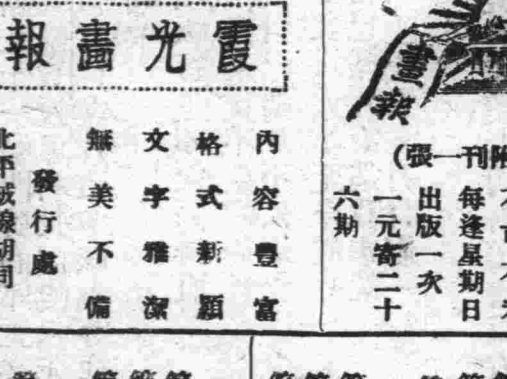 畫報
附刊一張)
每逢星期日
出版一次
一元寄二十
六期
霞光畫報
內容豐富
格式新穎
文字雅潔
無美不備
發行處
北平絨線胡同